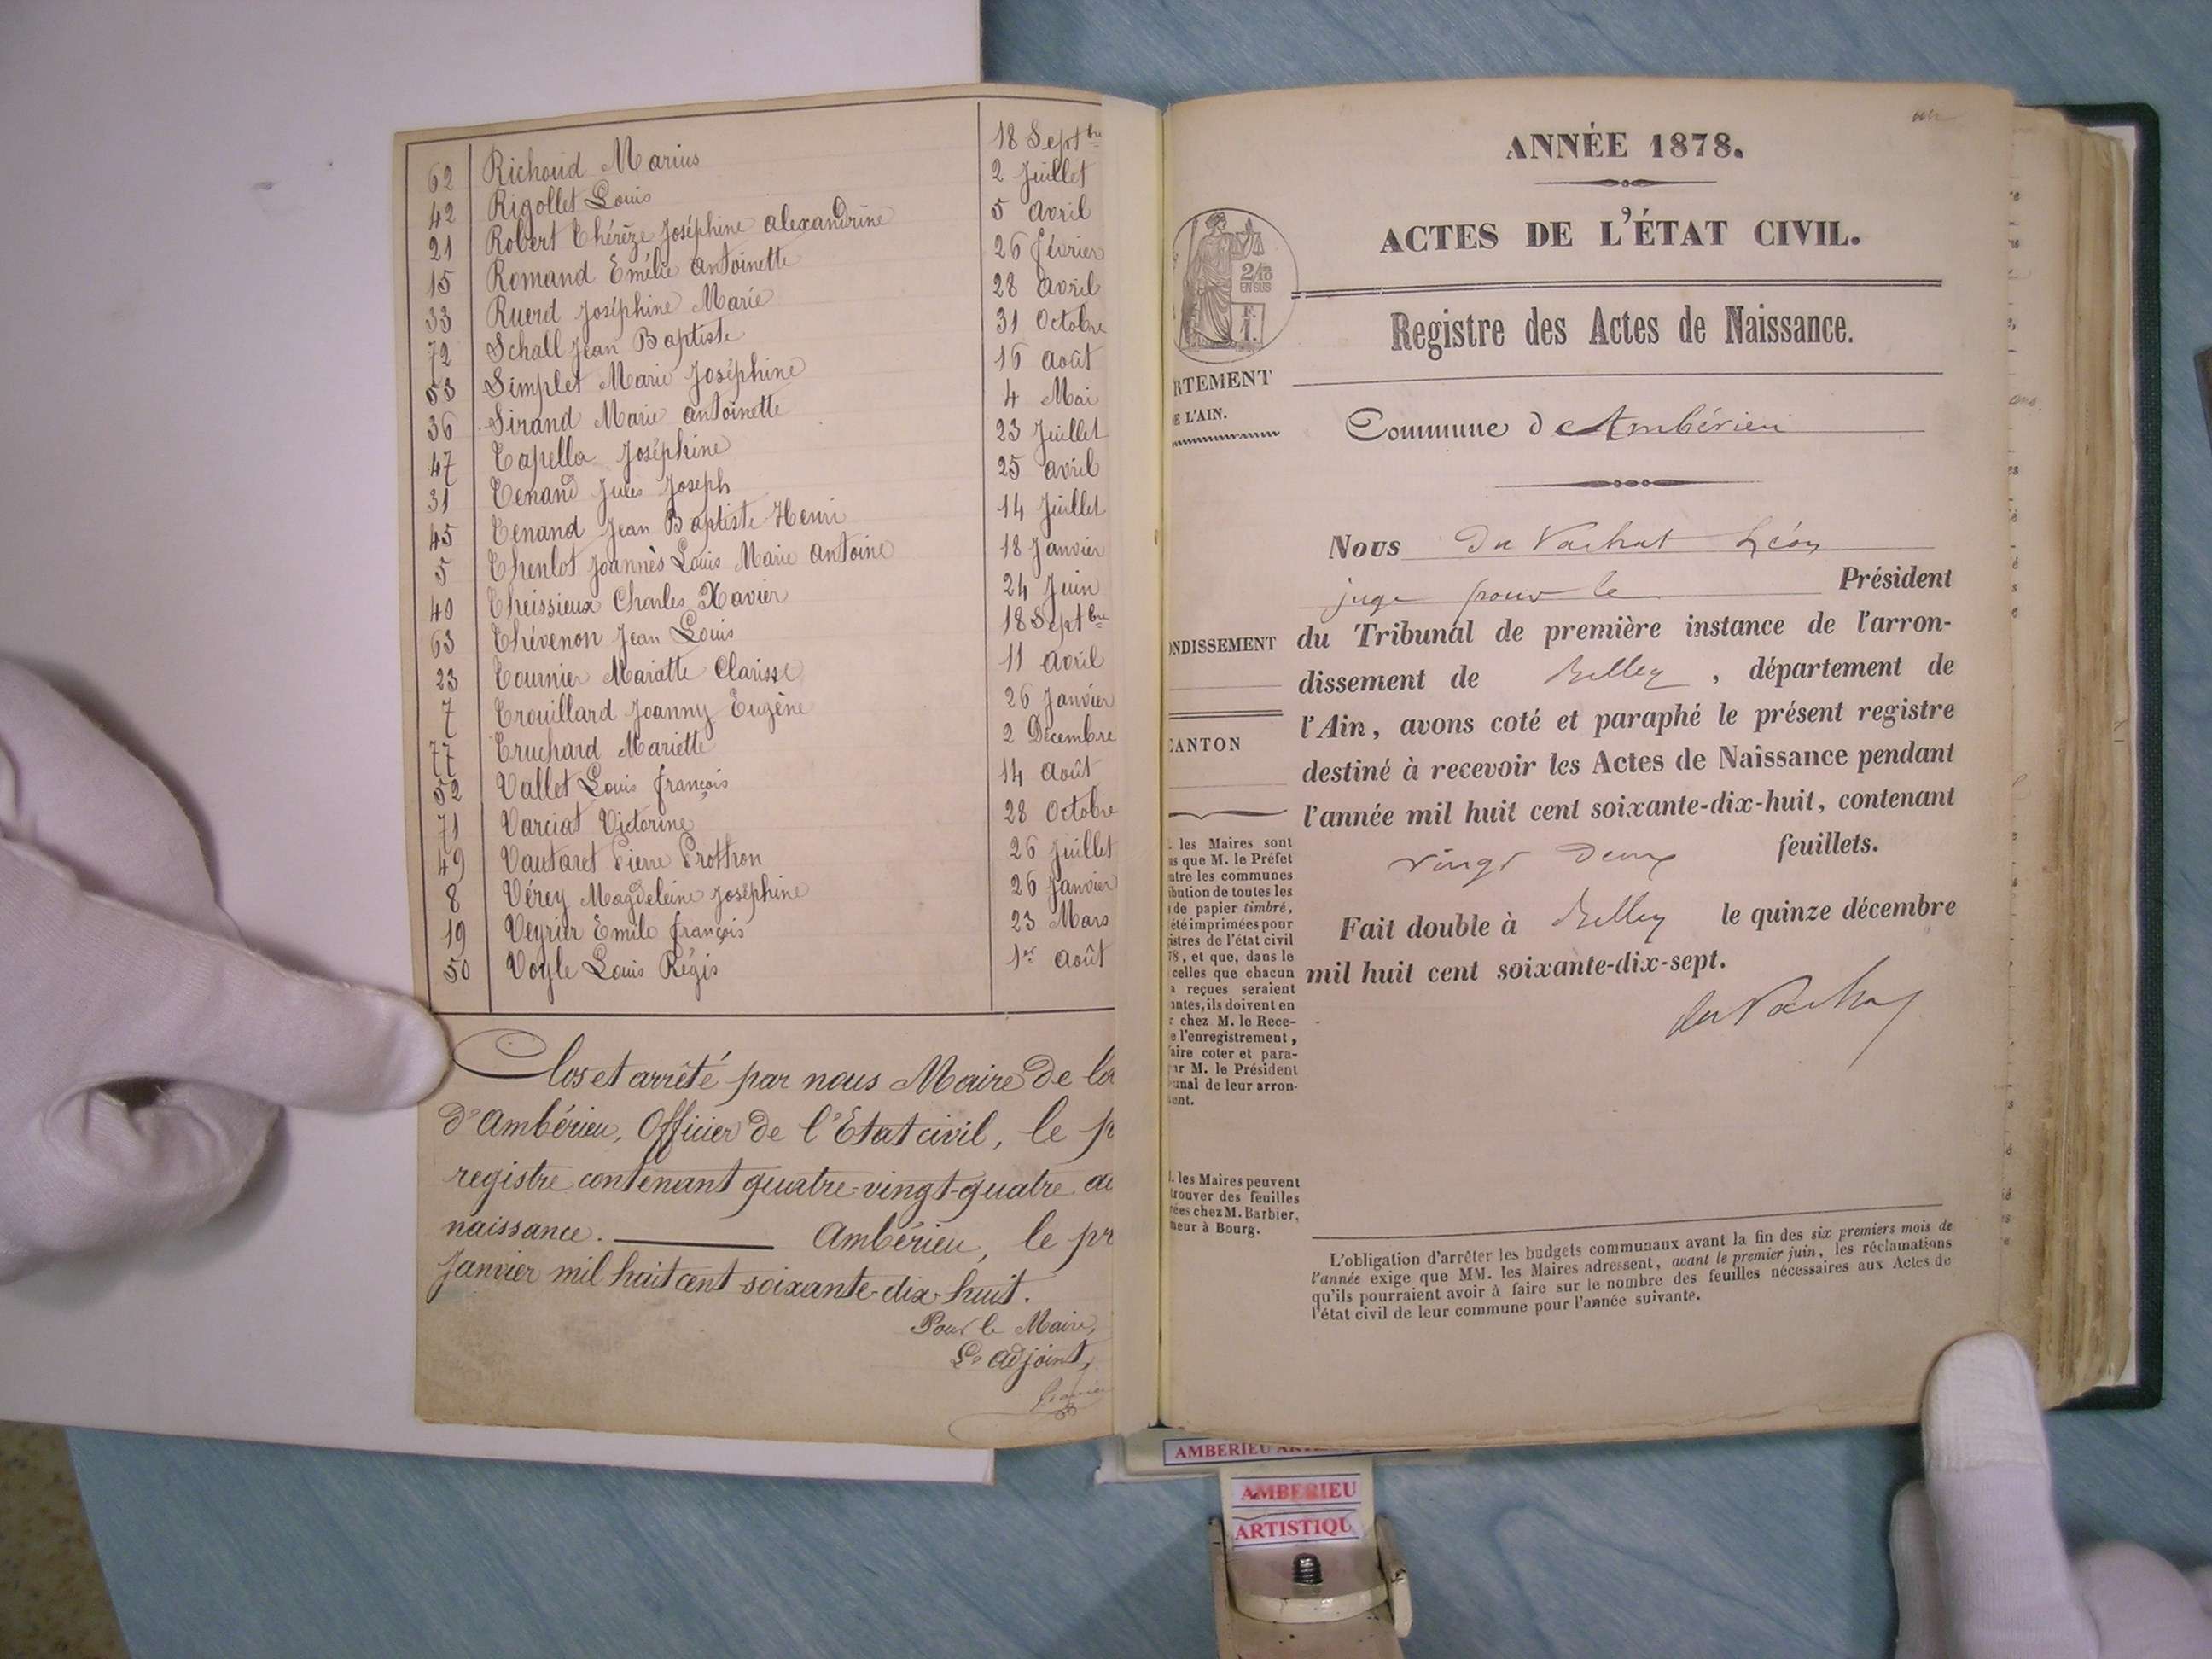 62 Richoud Marius 18 Septbre
42 Rigollet Louis 2 Juillet
21 Robert Thérèze Joséphine alexandrine 5 avril
15 Romand Emélie antoinette 26 février
33 Ruerd Joséphine Marie 28 avril
72 Schall Jean Baptiste 31 Octobre
53 Simplet Marie Joséphine 16 août
36 Sirand Marie antoinette 4 Mai
47 Tapella Joséphine 23 Juillet
31 Tenand Jules Joseph 25 avril
45 Tenand Jean Baptiste Henri 14 Juillet
5 Thenlot Joannès Louis Marie antoine 18 Janvier
40 Theissieux Charles Xavier 24 Juin
63 Thévenon Jean Louis 18 Septbre
23 Tournier Mariette Clarisse 11 avril
7 Trouillard Joanny Eugène 26 Janvier
77 Truchard Mariette 2 Décembre
52 Vallet Louis françois 14 août
71 Varciat Victorine 28 Octobre
49 Vautaret Pierre Prothon 26 Juillet
8 Vérey Magdeleine Joséphine 26 Janvier
19 Veyrier Emile françois 23 Mars
50 Voyle Louis Régis 1er août
Clos et arrêté par nous Maire de la
d'Ambérieu, Officier de l'Etat civil, le p
registre contenant quatre-vingt-quatre ac
naissance. Ambérieu, le pr
Janvier mil huit cent soixante-dix-huit.
Pour le Maire,
L'adjoint,
ANNÉE 1878.
ACTES DE L'ÉTAT CIVIL.
2/10
EN SUS
F.
1.
Registre des Actes de Naissance.
RTEMENT
E L'AIN.
Commune d'Ambérieu
Nous Du Vachat Léon
juge pour le Président
ONDISSEMENT
du Tribunal de première instance de l'arron-
dissement de Belley, département de
l'Ain, avons coté et paraphé le présent registre
CANTON
destiné à recevoir les Actes de Naissance pendant
l'année mil huit cent soixante-dix-huit, contenant
vingt deux feuillets.
Fait double à Belley le quinze décembre
mil huit cent soixante-dix-sept.
du Vachat
. les Maires sont
us que M. le Préfet
ntre les communes
ibution de toutes les
de papier timbré,
été imprimées pour
istres de l'état civil
78, et que, dans le
celles que chacun
a reçues seraient
antes, ils doivent en
r chez M. le Rece-
e l'enregistrement,
aire coter et para-
ar M. le Président
unal de leur arron-
ent.
. les Maires peuvent
trouver des feuilles
ées chez M. Barbier,
meur à Bourg.
L'obligation d'arrêter les budgets communaux avant la fin des six premiers mois de
l'année exige que MM. les Maires adressent, avant le premier juin, les réclamations
qu'ils pourraient avoir à faire sur le nombre des feuilles nécessaires aux Actes de
l'état civil de leur commune pour l'année suivante.
AMBERIEU
AMBERIEU
ARTISTIQU